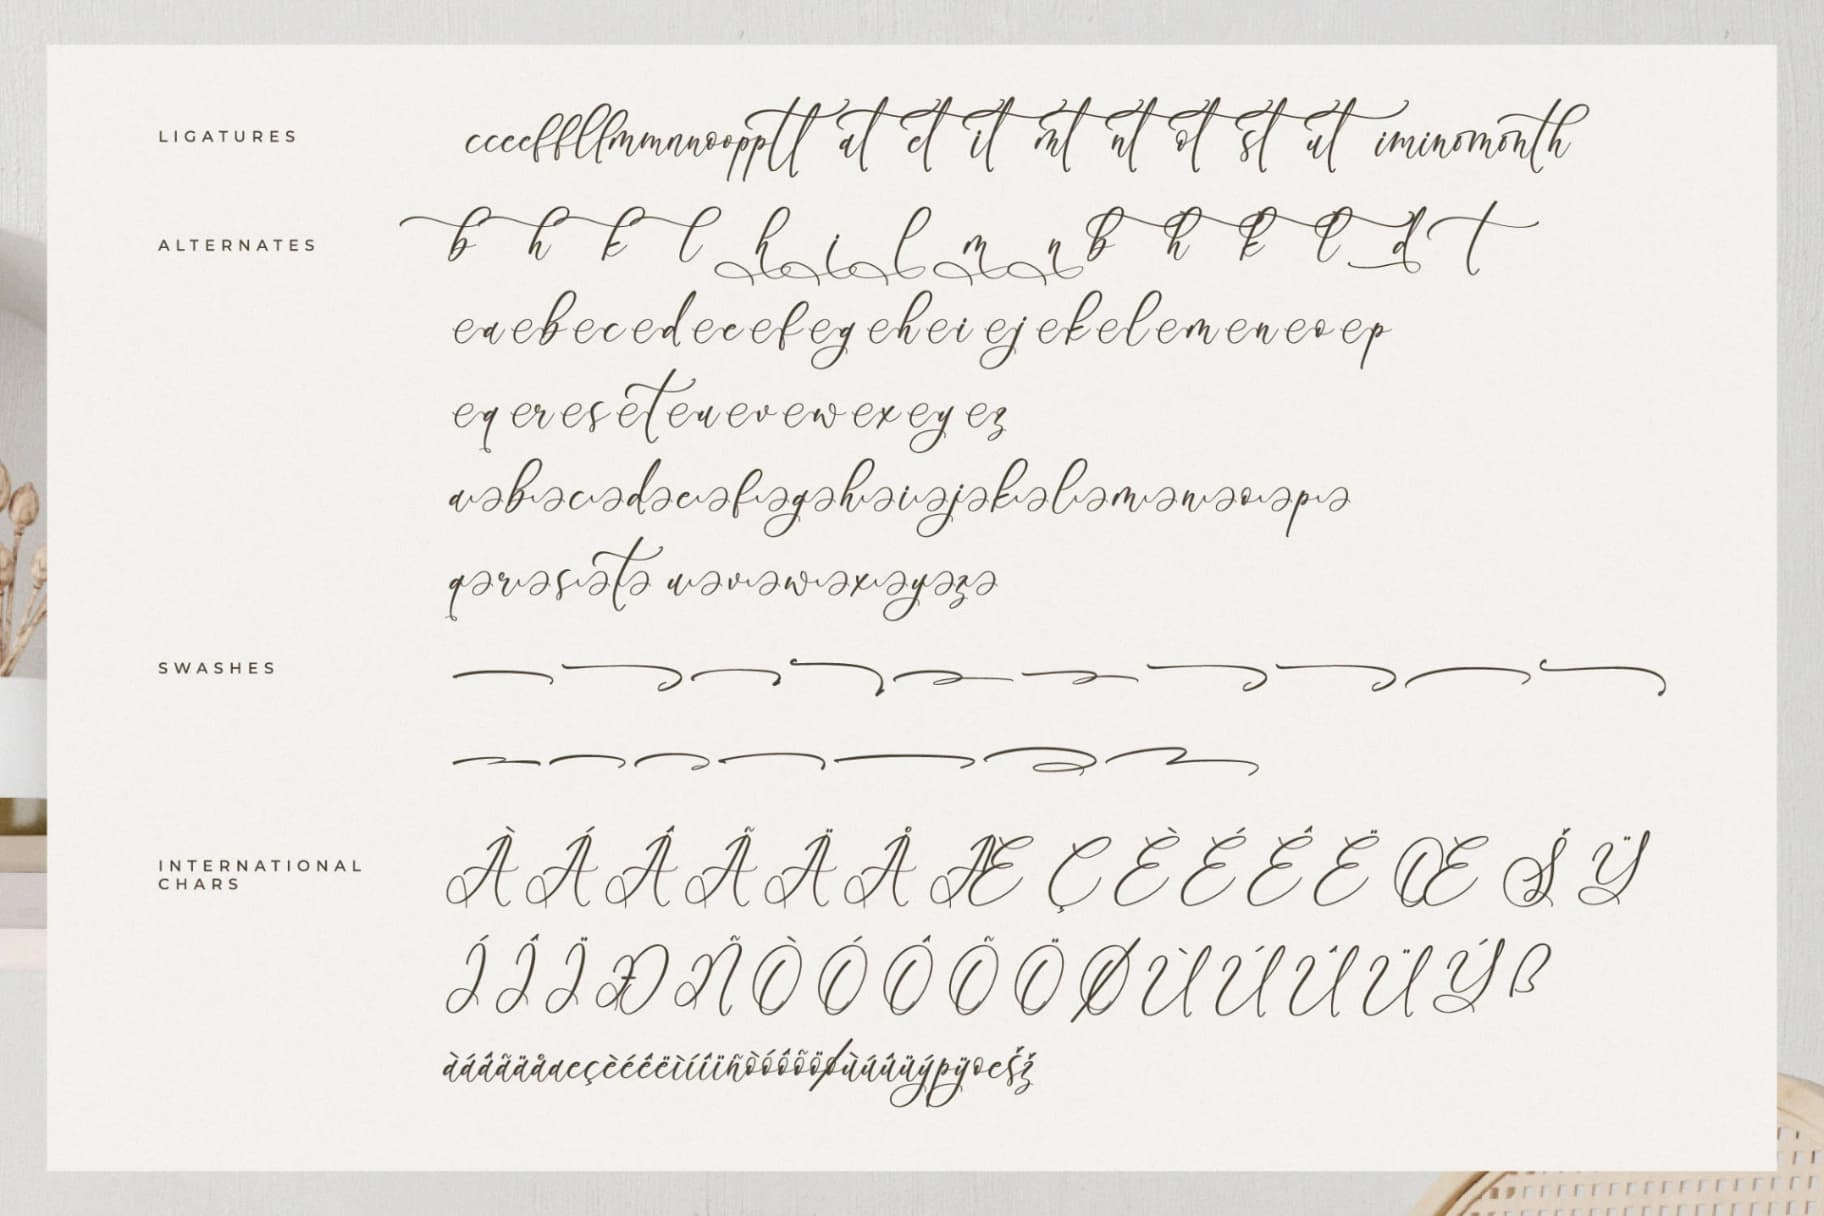 LIGATURES
cceeffllmmnnoopptt at et it mt nt ot st ut im in om on th
ALTERNATES
b h k l h i l m n b h k l d t
ea eb ec ed ee ef eg eh ei ej ek el em en eo ep
eq er es et eu ev ew ex ey ez
a b c d e f g h i j k l m n o p
q r s t u v w x y z
SWASHES
INTERNATIONAL
CHARS
À Á Â Ã Ä Å Æ Ç È É Ê Ë Œ Š Ÿ
Í Î Ï Ð Ñ Ò Ó Ô Õ Ö Ø Ù Ú Û Ü Ý ß
àáâãäåæçèéêëìíîïñòóôõöøùúûüýþÿœšž